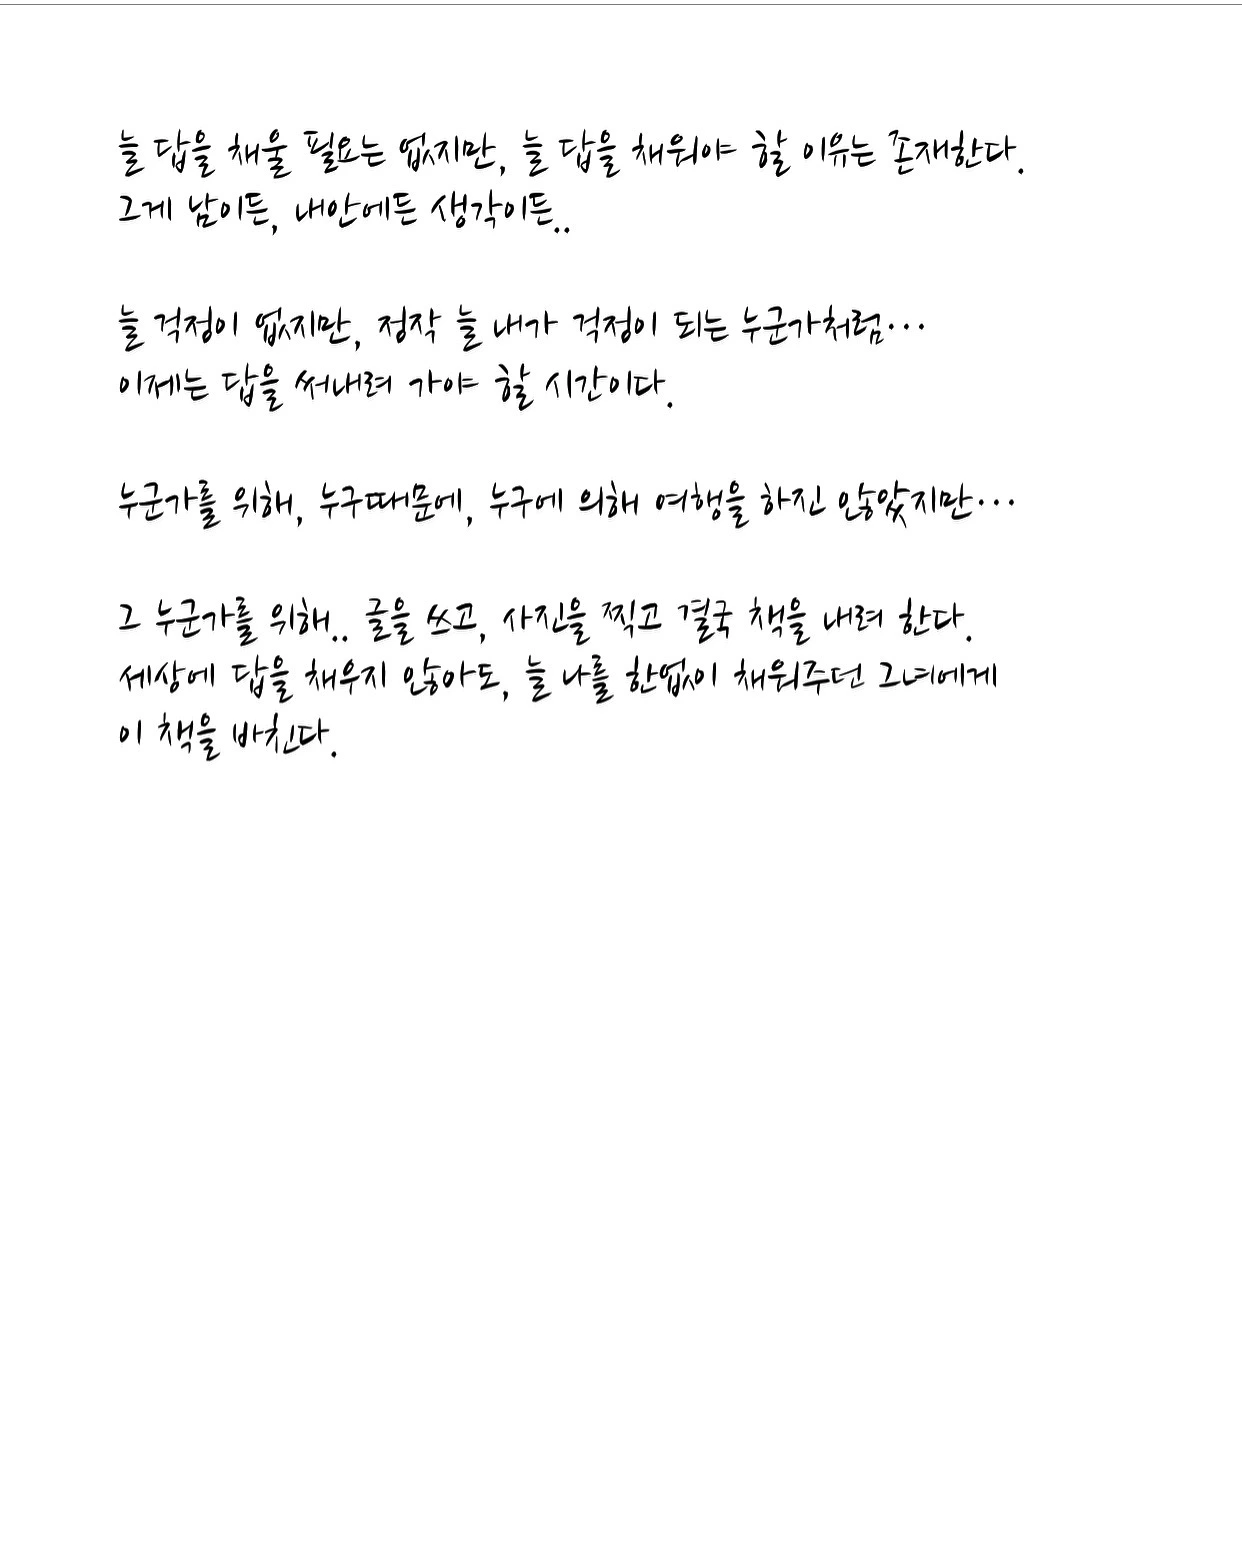 늘 답을 채울 필요는 없지만, 늘 답을 채워야 할 이유는 존재한다.
그게 남이든, 내안에든 생각이든..
늘 걱정이 없지만, 정작 늘 내가 걱정이 되는 누군가처럼···
이제는 답을 써내려 가야 할 시간이다.
누군가를 위해, 누구때문에, 누구에 의해 여행을 하진 않았지만···
그 누군가를 위해.. 글을 쓰고, 사진을 찍고 결국 책을 내려 한다.
세상에 답을 채우지 않아도, 늘 나를 한없이 채워주던 그녀에게
이 책을 바친다.